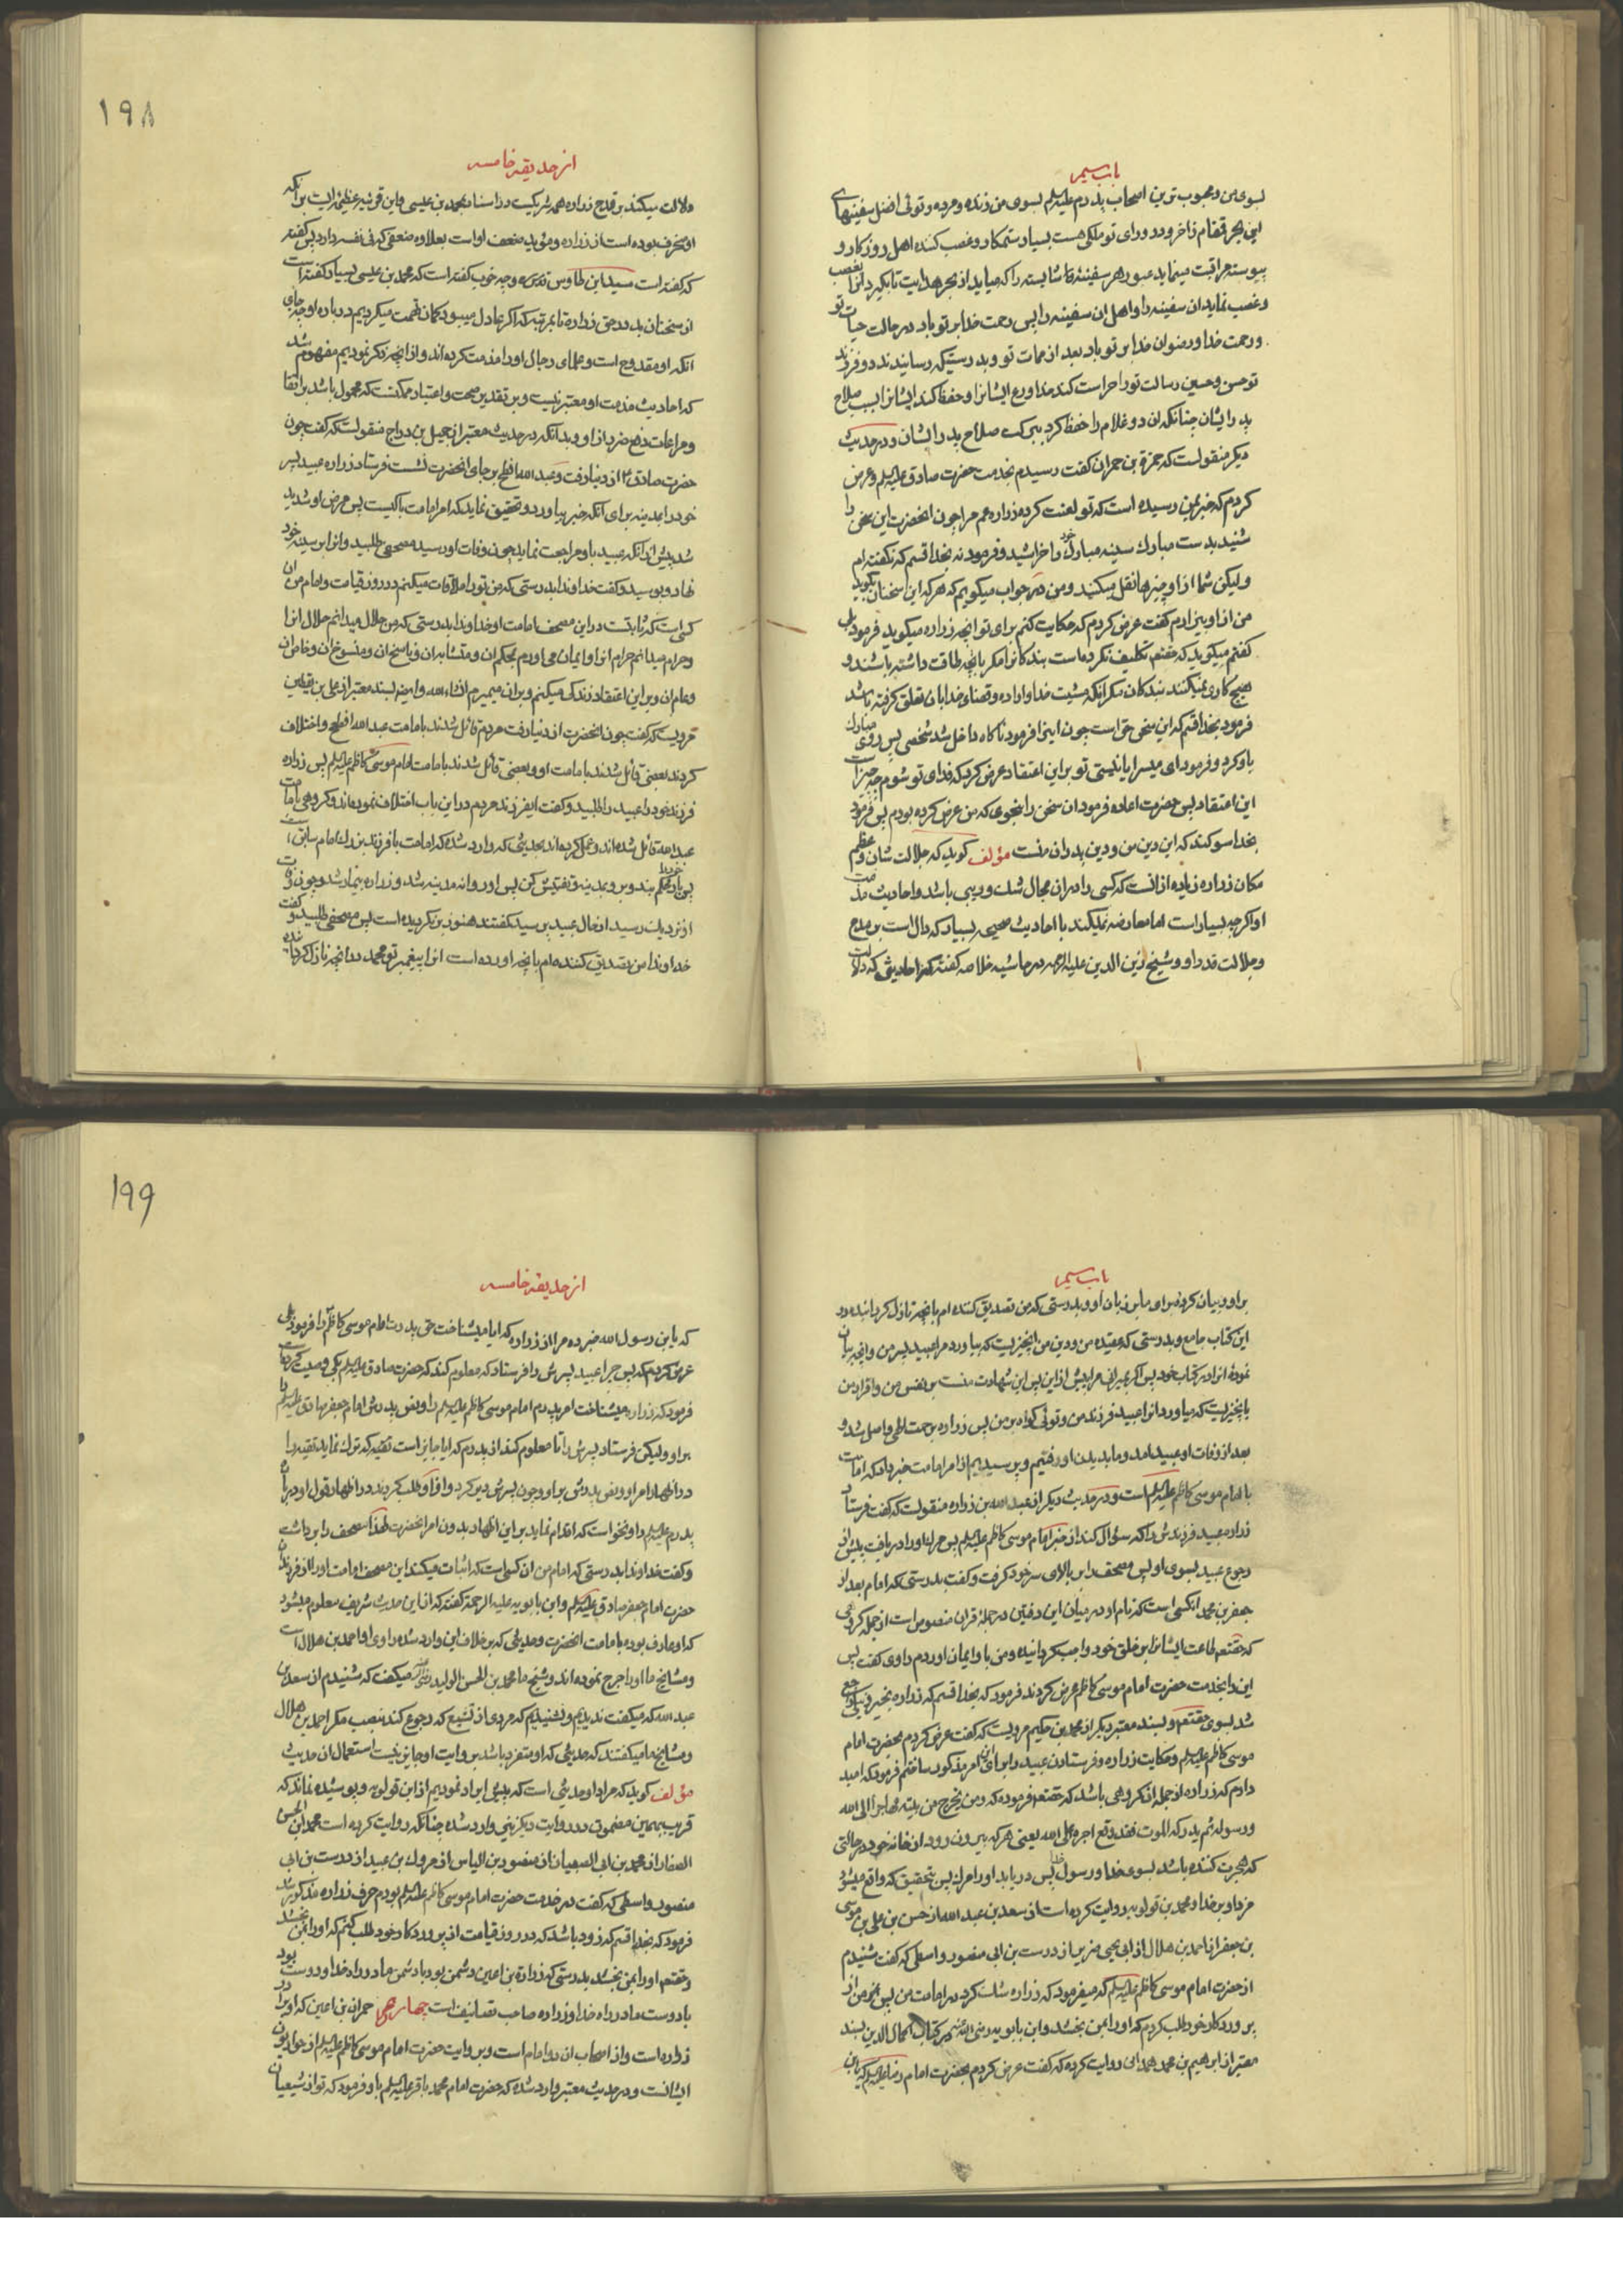 باب سیم
بسوی من و محبوب ترین اصحاب پدرم علیه السلم بسوی من زنده و مرده و توئی افضل سفینهای
این بحر قمقام زاخر و در ورای تو ملکی هست بسیار ستمکار و غصب کننده اهل روزکار و
پیوسته مراقبت مینماید عبور هر سفینهٔ شایسته را که میاید از بحر هدایت تا بکیرد انرا بغصب
و غصب نماید ان سفینه را و اهل ان سفینه را پس رحمت خدا بر تو باد در حالت حیات تو
و رحمت خدا و رضوان خدا بر تو باد بعد از ممات تو و بدرستیکه رسانیدند دو فرزند
تو حسن و حسین رسالت تو را حراست کند خداوند ایشانرا و حفظ کند ایشانرا بسبب صلاح
پدر ایشان چنانکه ان دو غلام را حفظ کرد ببرکت صلاح پدر ایشان و در حدیث
دیکر منقولست که حمزة بن حمران کفت رسیدم بخدمت حضرت صادق علیه السلم و عرض
کردم که خبر بمن رسیده است که تو لعنت کردهٔ زراره عم مرا چون انحضرت این سخن را
شنید بدست مبارک سینه مبارک خود را خراشید و فرمود نه بخدا قسم که نکفته ام
ولیکن شما از او چیزها نقل میکنید و من در جواب میکویم که هر که این سخنان بکوید
من از او بیزارم کفت عرض کردم که حکایت کنم برای تو انچه زراره میکوید فرمود بلی
کفتم میکوید که حقتعم تکلیف نکرده است بندکانرا مکر بانچه طاقت داشته باشند و
هیچ کاری نمیکنند بندکان مکر انکه مشیت خدا و اراده و قضای خدا بان تعلق کرفته باشد
فرمود بخدا قسم که این سخن حق است چون اینرا فرمود ناکاه داخل شد شخصی پس روی مبارک
باو کرد و فرمود ای میسر ایا نیستی تو بر این اعتقاد عرض کرد که فدای تو شوم چه چیز است
این اعتقاد پس حضرت اعاده فرمود ان سخن را بنحوی که من عرض کرده بودم پس فرمود
بخدا سوکند که این دین من و دین پدران منست مؤلف کوید که جلالت شان و عظم
مکان زراره زیاده از انست که کسی را در ان مجال شک و ریبی باشد و احادیث مذمت
او اکر چه بسیار است اما معارضه نمیکند با احادیث صحیحه بسیار که دال است بر مدح
و جلالت قدر او و شیخ زین الدین علیه الرحمه در حاشیه خلاصه کفته که احادیثی که دلالت
۱۹۸
از حدیقه خامسه
دلالت میکنند بر قدح زراره همه شریکست در اسناد محمد بن عیسی و این قرینه عظیمه ایست بر انکه
او منحرف بوده است از زراره و مؤید ضعف او است بعلاوه ضعفی که فی نفسه دارد پس کفته
که کفته است سید ابن طاوس قدس سره و چه خوب کفته است که محمد بن عیسی بسیار کفته است
از سخنان بد در حق زراره تا بمرتبه که اکر عادل میبود کمان تهمت میکردیم در باره او چه جای
انکه او مقدوح است و علمای رجال او را مذمت کرده اند و از انچه ذکر نمودیم مفهوم شد
که احادیث مذمت او معتبر نیست و بر تقدیر صحت و اعتبار ممکنست که محمول باشد بر اتقا
و مراعات دفع ضرر از او و بدانکه در حدیث معتبر از جمیل بن دراج منقولست که کفت چون
حضرت صادق ع از دنیا رفت و عبد الله افطح بر جای انحضرت نشست فرستاد زراره عبید پسر
خود را بمدینه برای انکه خبر بیاورد و تحقیق نماید که امر امامت با کیست پس مرض او شدید
شد پیش از انکه عبید باو مراجعت نماید چون وفات او رسید مصحفی طلبید و انرا بر سینه خود
نهاد و بوسید و کفت خداوندا بدرستی که من تو را ملاقات میکنم در روز قیامت و امام من ان
کسی است که ثابتست در این مصحف امامت او خداوندا بدرستی که من حلال میدانم حلال انرا
و حرام میدانم حرام انرا و ایمان می اورم بمحکم ان و متشابه ان و ناسخ ان و منسوخ ان و خاص ان
و عام ان و بر این اعتقاد زندکی میکنم و بر ان میمیرم انشاء الله و ایضا بسند معتبر از علی بن یقطین
مرویست که کفت چون انحضرت از دنیا رفت مردم قائل شدند بامامت عبد الله افطح و اختلاف
کردند بعضی قائل شدند بامامت او و بعضی قائل شدند بامامت امام موسی کاظم علیه السلم پس زراره
فرزند خود را عبید را طلبید و کفت ایفرزند مردم در این باب اختلاف نموده اند و کروهی بامامت
عبد الله قائل شده اند و عمل کرده اند بحدیثی که وارد شده که امامت با فرزند بزرک امام سابق است
پس بار خود را محکم ببند و برو بمدینه و تفتیش کن پس او روانه مدینه شد و زراره بیمار شد و چون وفات
او نزدیک رسید از حال عبید پرسید کفتند هنوز برنکردیده است پس مصحفی طلبید و کفت
خداوندا من تصدیق کننده ام بانچه اورده است انرا پیغمبر تو محمد در انچه نازل کردانیدهٔ
باب سیم
بر او و بیان کردهٔ برای ما بر زبان او و بدرستی که من تصدیق کننده ام بانچه نازل کردانیدهٔ در
این کتاب جامع و بدرستی که عقیده من و دین من انچیزیست که بیاورد مرا عبید پسر من و انچه بیان
نمودهٔ انرا در کتاب خود پس اکر بمیرانی مرا پیش از این پس این شهادت منست بر نفس من و اقرار من
بانچیزیست که میاورد انرا عبید فرزند من و توئی کواه بر من پس زراره برحمت الهی واصل شد و
بعد از وفات او عبید امد و ما بدیدن او رفتیم و پرسیدیم از امر امامت خبر داد که امامت
با امام موسی کاظم علیه السلم است و در حدیث دیکر از عبد الله بن زراره منقولست که کفت فرستاد
زراره عبید فرزندش را که سؤال کند از خبر امام موسی کاظم علیه السلم پس مرک او را دریافت پیش از
رجوع عبید بسوی او پس مصحف را بر بالای سر خود کرفت و کفت بدرستی که امام بعد از
جعفر بن محمد انکسی است که نام او در میان این دفتین در جمله قران منصوص است از جمله کروهی
که حقتعم طاعت ایشانرا بر خلق خود واجب کردانیده و من باو ایمان اوردم راوی کفت پس
این را بخدمت حضرت امام موسی کاظم عرض کردند فرمود که بخدا قسم که زراره بخیر و نیکی راجع
شد بسوی حقتعم و بسند معتبر دیکر از محمد بن حکیم مرویست که کفت عرض کردم بحضرت امام
موسی کاظم علیه السلم و حکایت زراره و فرستادن عبید را برای این امر مذکور ساختم فرمود که امید
دارم که زراره از جمله ان کروهی باشد که حقتعم فرموده که و من یخرج من بیته مهاجرا الی الله
و رسوله ثم یدرکه الموت فقد وقع اجره علی الله یعنی هر که بیرون رود از خانه خود در حالتی
که هجرت کننده باشد بسوی خدا و رسول خدا پس دریابد او را مرک پس بتحقیق که واقع میشود
مزد او بر خدا و محمد بن قولویه روایت کرده است از سعد بن عبد الله از حسن بن علی بن موسی
بن جعفر از احمد بن هلال از ابی یحیی ضریر از درست بن ابی منصور واسطی که کفت شنیدم
از حضرت امام موسی کاظم علیه السلم که میفرمود که زراره شک کرد در امامت من پس من از
پروردکار خود طلب کردم که او را بمن بخشد و ابن بابویه رضی الله عنه در کتاب اکمال الدین بسند
معتبر از ابرهیم بن محمد همدانی روایت کرده که کفت عرض کردم بحضرت امام رضا علیه السلم که یابن
۱۹۹
از حدیقه خامسه
که یابن رسول الله خبر ده مرا از زراره که ایا میشناخت حق پدرت امام موسی کاظم را فرمود بلی
عرض کردم که پس چرا عبید پسرش را فرستاد که معلوم کند که حضرت صادق علیه السلم بکی وصیت کرده است
فرمود که زراره میشناخت امر پدرم امام موسی کاظم علیه السلم را و نص پدرش امام جعفر صادق علیه السلم را
بر او ولیکن فرستاد پسرش را تا معلوم کند از پدرم که ایا جایز است تقیه که ترک نماید تقیه را
در اظهار امر او و نص پدرش بر او و چون پسرش دیر کرد و از او طلب کردند در اظهار قول او در باب
پدرم علیه السلم و او نخواست که اقدام نماید بر این اظهار بدون امر انحضرت لهذا مصحف را برداشت
و کفت خداوندا بدرستی که امام من ان کسی است که اثبات میکند این مصحف امامت او را از فرزندان
حضرت امام جعفر صادق علیه السلم و ابن بابویه علیه الرحمة کفته که از این حدیث شریف معلوم میشود
که او عارف بوده بامامت انحضرت و حدیثی که بر خلاف این وارد شده راوی او احمد بن هلال است
و مشایخ ما او را جرح نموده اند و شیخ ما محمد بن الحسن الولید میکفت که شنیدم از سعد بن
عبد الله که میکفت ندیدیم و نشنیدیم که مردی از تشیع که رجوع کند بنصب مکر احمد بن هلال
و مشایخ ما میکفتند که حدیثی که او متفرد باشد بروایت او جایز نیست استعمال ان حدیث
مؤلف کوید که مراد او حدیثی است که پیش ایراد نمودیم از ابن قولویه و پوشیده نماند که
قریب بهمین مضمون در روایت دیکر نیز وارد شده چنانکه روایت کرده است محمد ابن الحسن
الصفار از محمد بن ابی الصهبان از منصور بن الیاس از مروک بن عبید از درست بن ابی
منصور واسطی که کفت در خدمت حضرت امام موسی کاظم علیه السلم بودم حرف زراره مذکور شد
فرمود که بخدا قسم که زود باشد که در روز قیامت از پروردکار خود طلب کنم که او را بمن بخشد
و حقتعم او را بمن بخشد بدرستی که زرارة بن اعین دشمن بود با دشمن ما در راه خدا و دوست بود
با دوست ما در راه خدا و زراره صاحب تصانیف است چهارم حمران بن اعین که او برادر
زراره است و از اصحاب ان دو امام است و بروایت حضرت امام موسی کاظم علیه السلم از حواریون
ایشانست و در حدیث معتبر وارد شده که حضرت امام محمد باقر علیه السلم باو فرمود که تو از شیعیان